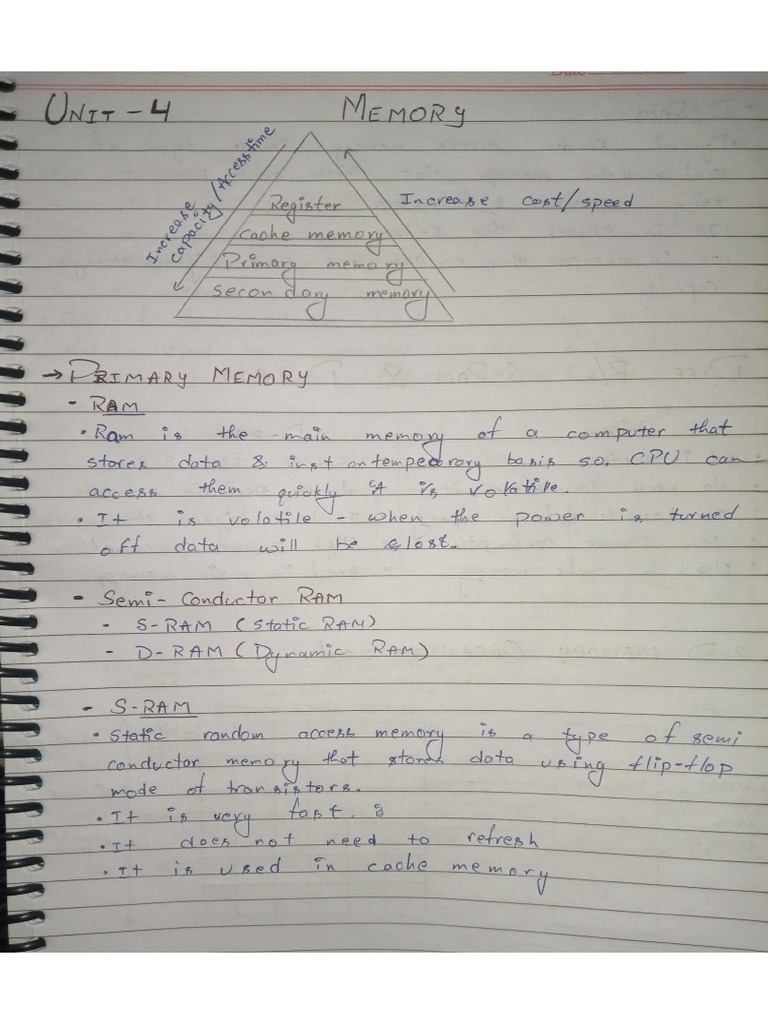 Date
UNIT - 4 MEMORY
Increase
capacity/Accesstime
Increase cost/speed
Register
Cache memory
Primary memory
Secondary memory
→ PRIMARY MEMORY
- RAM
• Ram is the main memory of a computer that
stores data & inst on temperory basis so, CPU can
access them quickly is volatile.
• It is volatile - when the power is turned
off data will be lost.
- Semi-Conductor RAM
- S-RAM (Static RAM)
- D-RAM (Dynamic RAM)
- S-RAM
• Static random access memory is a type of semi
conductor memory that stores data using flip-flop
mode of transistors.
• It is very fast.
• It does not need to refresh
• It is used in cache memory